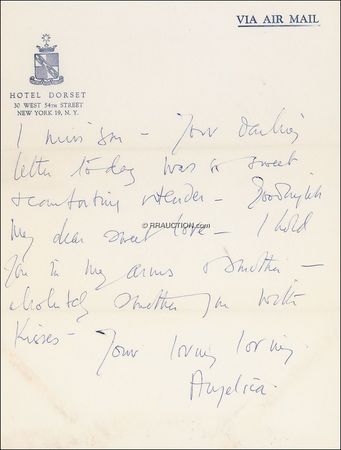 VIA AIR MAIL
HOTEL DORSET
30 WEST 54TH STREET
NEW YORK 19, N. Y.
I miss you – Your darling
letter to-day was so sweet
& comforting & tender – Goodnight
My dear sweet love – I hold
© RRAUCTION.com
You in my arms & smother –
absolutely smother you with
Kisses – Your loving loving
Angelica.